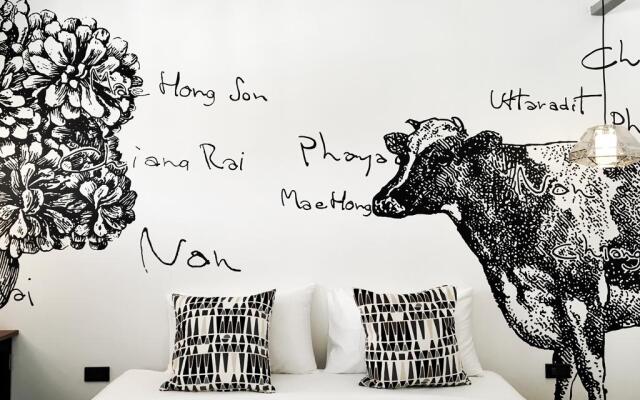 Hong Son
iang Rai
Non
ai
Phaya
Mae Hong
Uttaradit
Ch
Ph
Non
Chiang